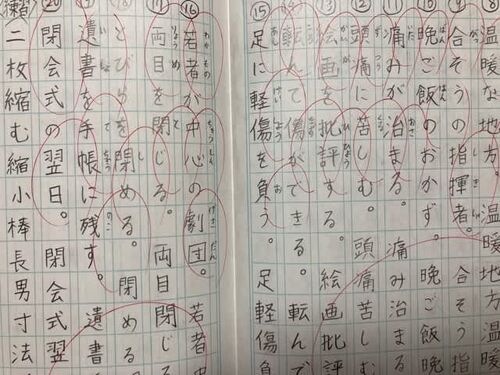 ⑧温暖な地方。温暖地方
⑨合そうの指揮者。合そう
⑩晩ご飯のおかず。晩ご飯
⑪痛みが治まる。痛み治ま
⑫頭痛に苦しむ。頭痛苦し
⑬絵画を批評する。絵画批評
⑭転んで傷ができる。転んで
⑮足に軽傷を負う。足軽傷
⑯若者が中心の劇団。若者
⑰両目を閉じる。両目閉じ
とびらを閉める。閉める
遺書を手帳に残す。遺書
⑳閉会式の翌日。閉会式翌
練習二枚縮む縮小棒長男寸法